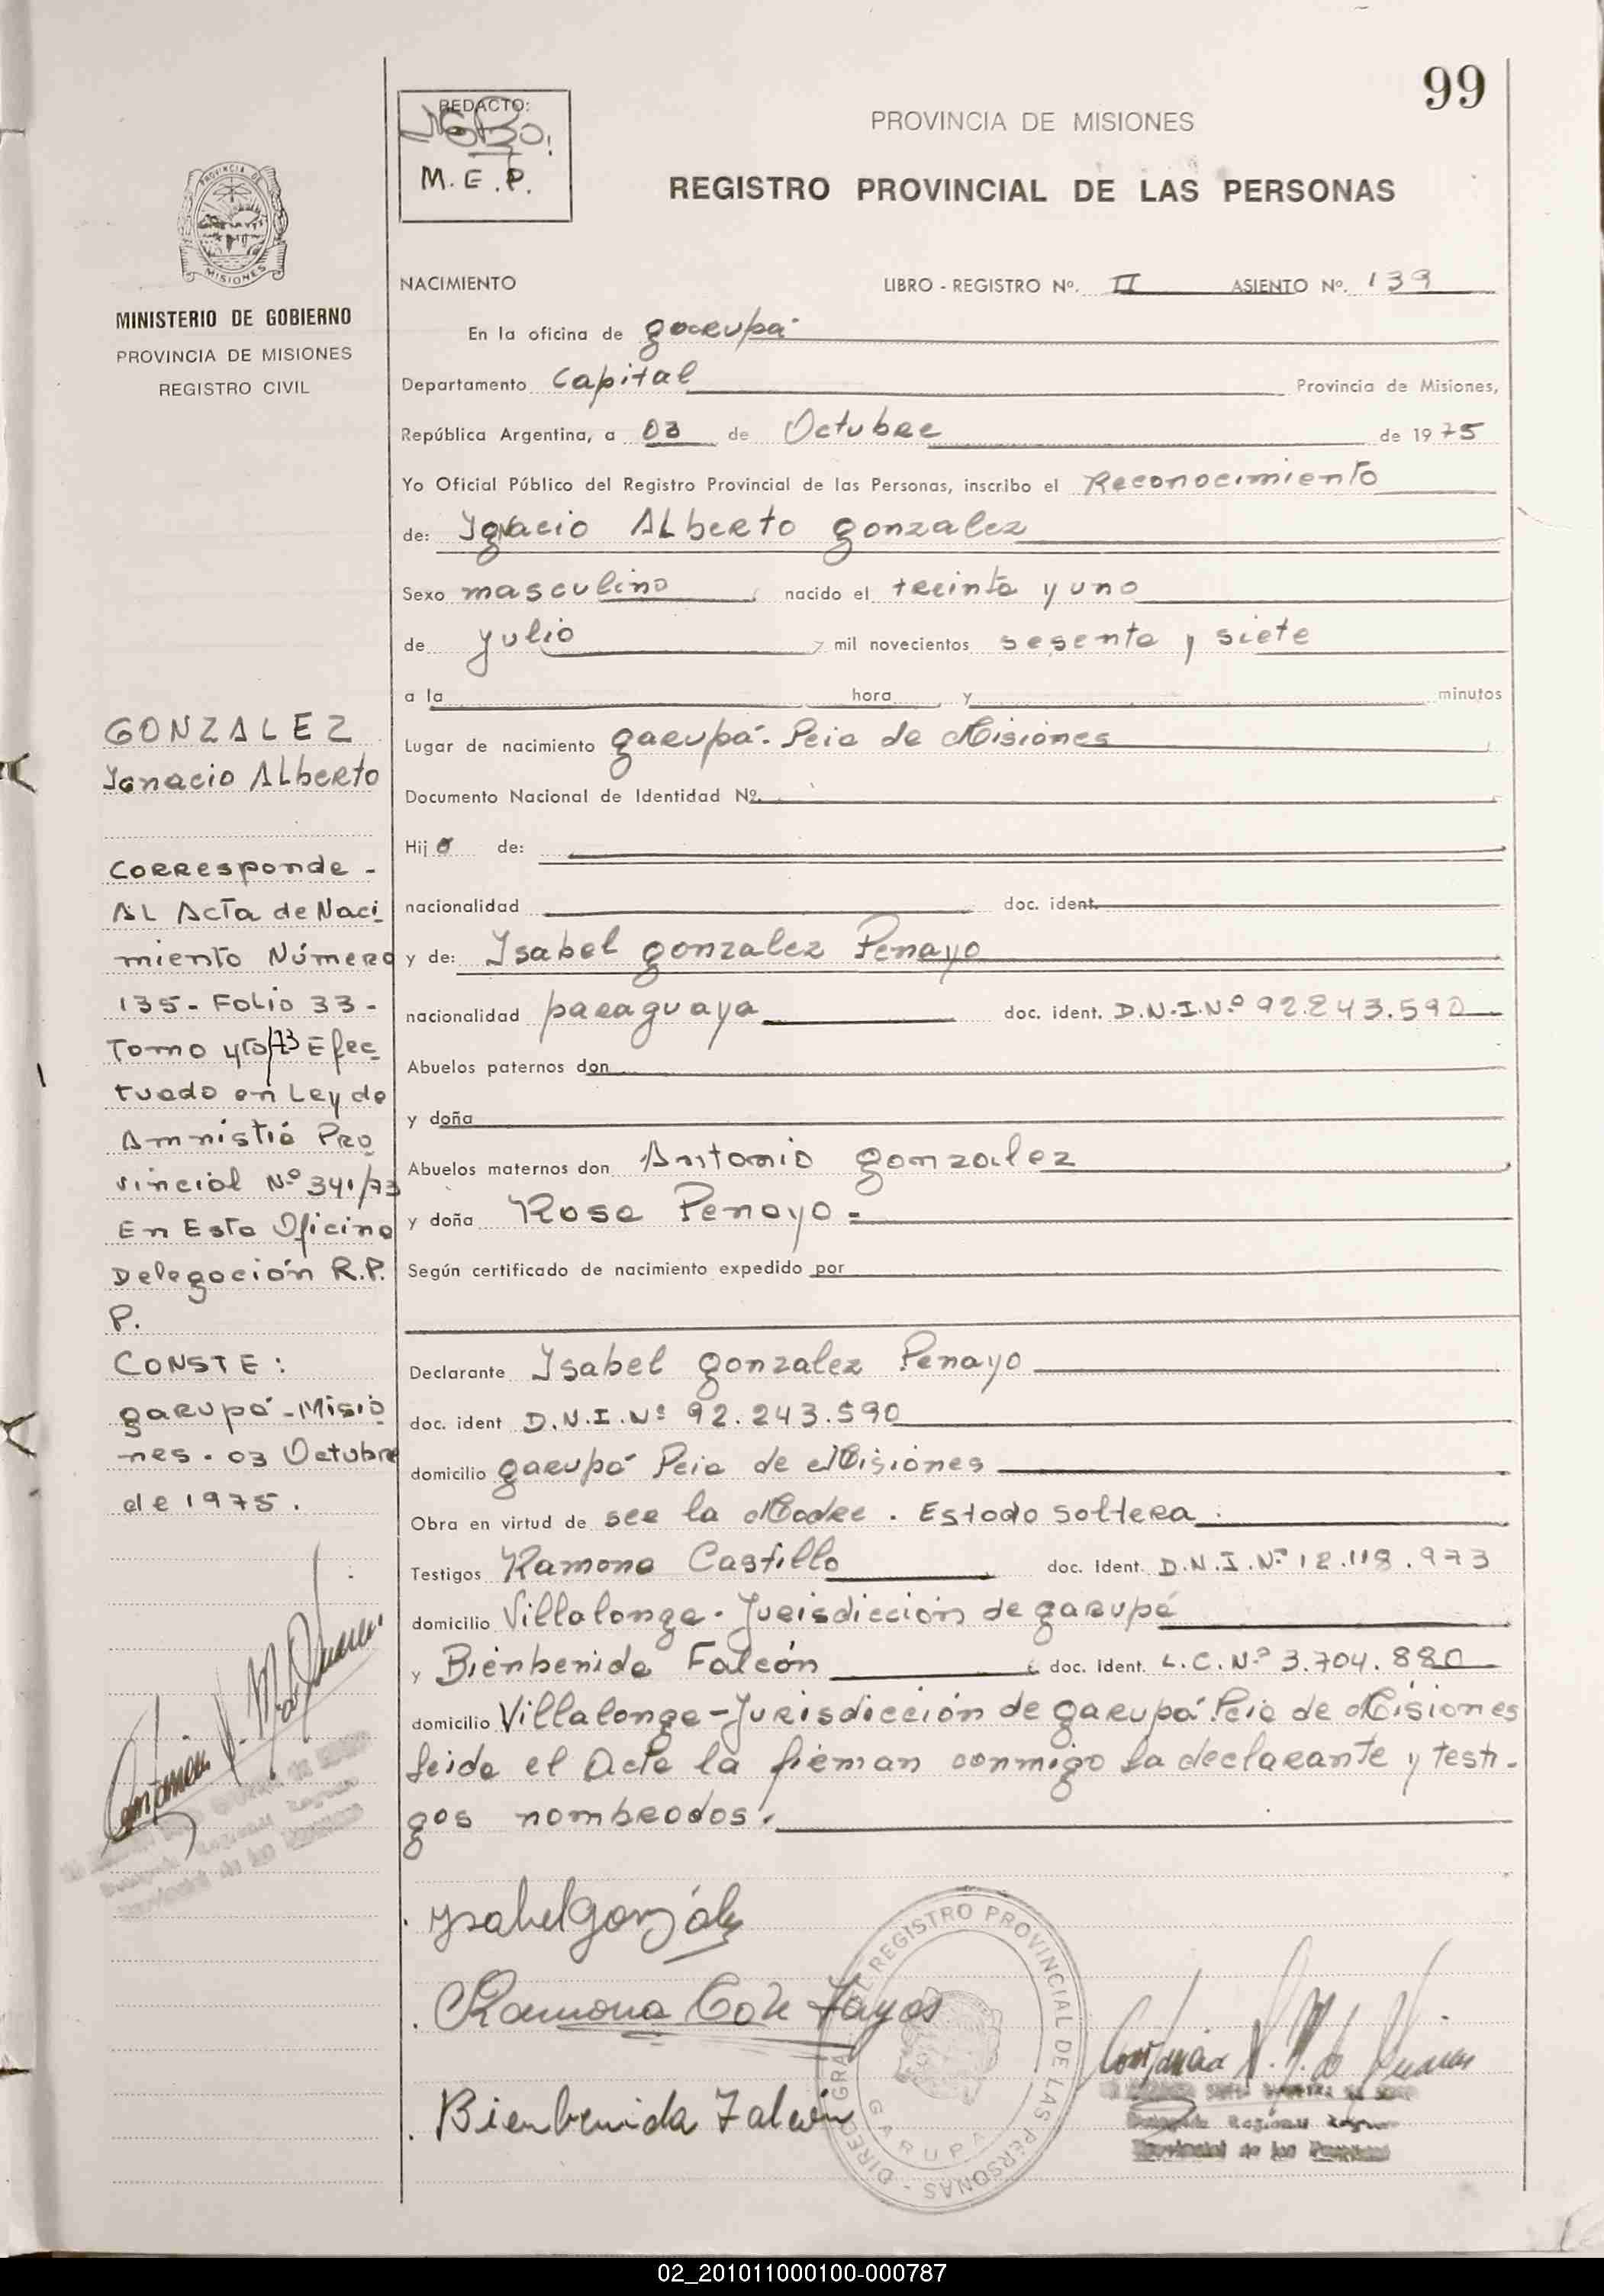 99
REDACTO:
M.E.P.
PROVINCIA DE MISIONES
REGISTRO PROVINCIAL DE LAS PERSONAS
PROVINCIA DE
MISIONES
MINISTERIO DE GOBIERNO
PROVINCIA DE MISIONES
REGISTRO CIVIL
NACIMIENTO LIBRO - REGISTRO Nº. II ASIENTO Nº. 139
En la oficina de garupá
Departamento Capital Provincia de Misiones,
República Argentina, a 03 de Octubre de 1975
Yo Oficial Público del Registro Provincial de las Personas, inscribo el Reconocimiento
de: Ignacio ALberto gonzalez
Sexo masculino nacido el treinta y uno
de julio mil novecientos sesenta y siete
a la hora y minutos
Lugar de nacimiento garupá - Pcia de Misiones
Documento Nacional de Identidad Nº.
Hijo de:
nacionalidad doc. ident.
y de: Isabel gonzalez Penayo
nacionalidad paraguaya doc. ident. D.N.I.Nº 92.243.590
Abuelos paternos don
y doña
Abuelos maternos don Antonio gonzalez
y doña Rosa Penayo =
Según certificado de nacimiento expedido por
Declarante Isabel gonzalez Penayo
doc. ident D.N.I.Nº 92.243.590
domicilio garupá Pcia de Misiones
Obra en virtud de ser la Madre . Estado soltera .
Testigos Ramona Castillo doc. ident. D.N.I.Nº 12.118.973
domicilio Villalonga - Jurisdicción de garupá
y Bienbenida Falcón doc. ident. L.C.Nº 3.704.880
domicilio Villalonga - Jurisdicción de garupá Pcia de Misiones
Leida el Acta la firman conmigo la declarante y testi-
gos nombrados.
GONZALEZ
Ignacio ALberto
Corresponde -
AL Acta de Naci
miento Número
135 - Folio 33 -
Tomo 4to/73 Efec
tuado en Ley de
Amnistía Pro
vincial Nº 341/73
En Esta Oficina
Delegación R.P.
P.
CONSTE :
garupá - Misio
nes . 03 Octubre
de 1975 .
Isabel González
Ramona
Bienbenida Falcón
REGISTRO PROVINCIAL DE LAS PERSONAS - DIREC. GRAL.
GARUPA
Provincial de las Personas
02_201011000100-000787